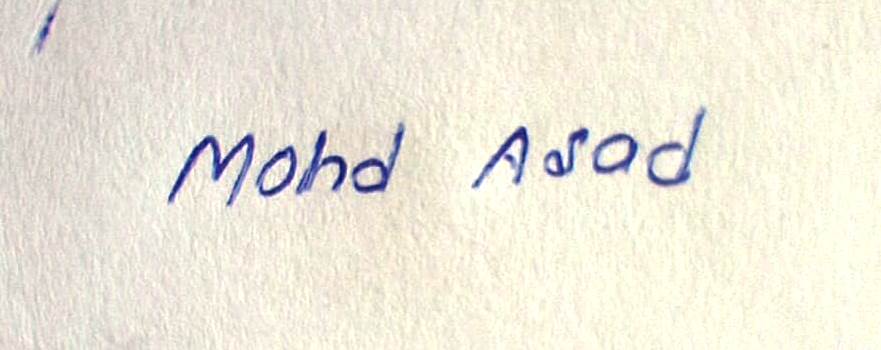 Mohd Asad